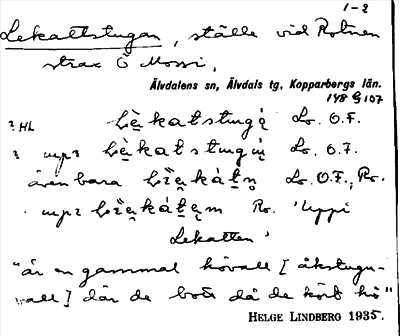 1-2
Lekattstugan, ställe vid Rotnen
strax Ö Mossi.
Älvdalens sn, Älvdals tg, Kopparbergs län.
148 G 107
? HL Lè̱katstungą̀ Lr. O.F.
? mp? Lè̱katstungįṇ Lr. O.F.
även bara Lìe̱kátn̥ Lr. O.F., Rr.
mp? Lìe̱kátę̱m Rr. 'Uppi
Lekatten'
"är en gammal hövall [åkstugu-
vall] där de bott då de kört hö"
HELGE LINDBERG 1935.